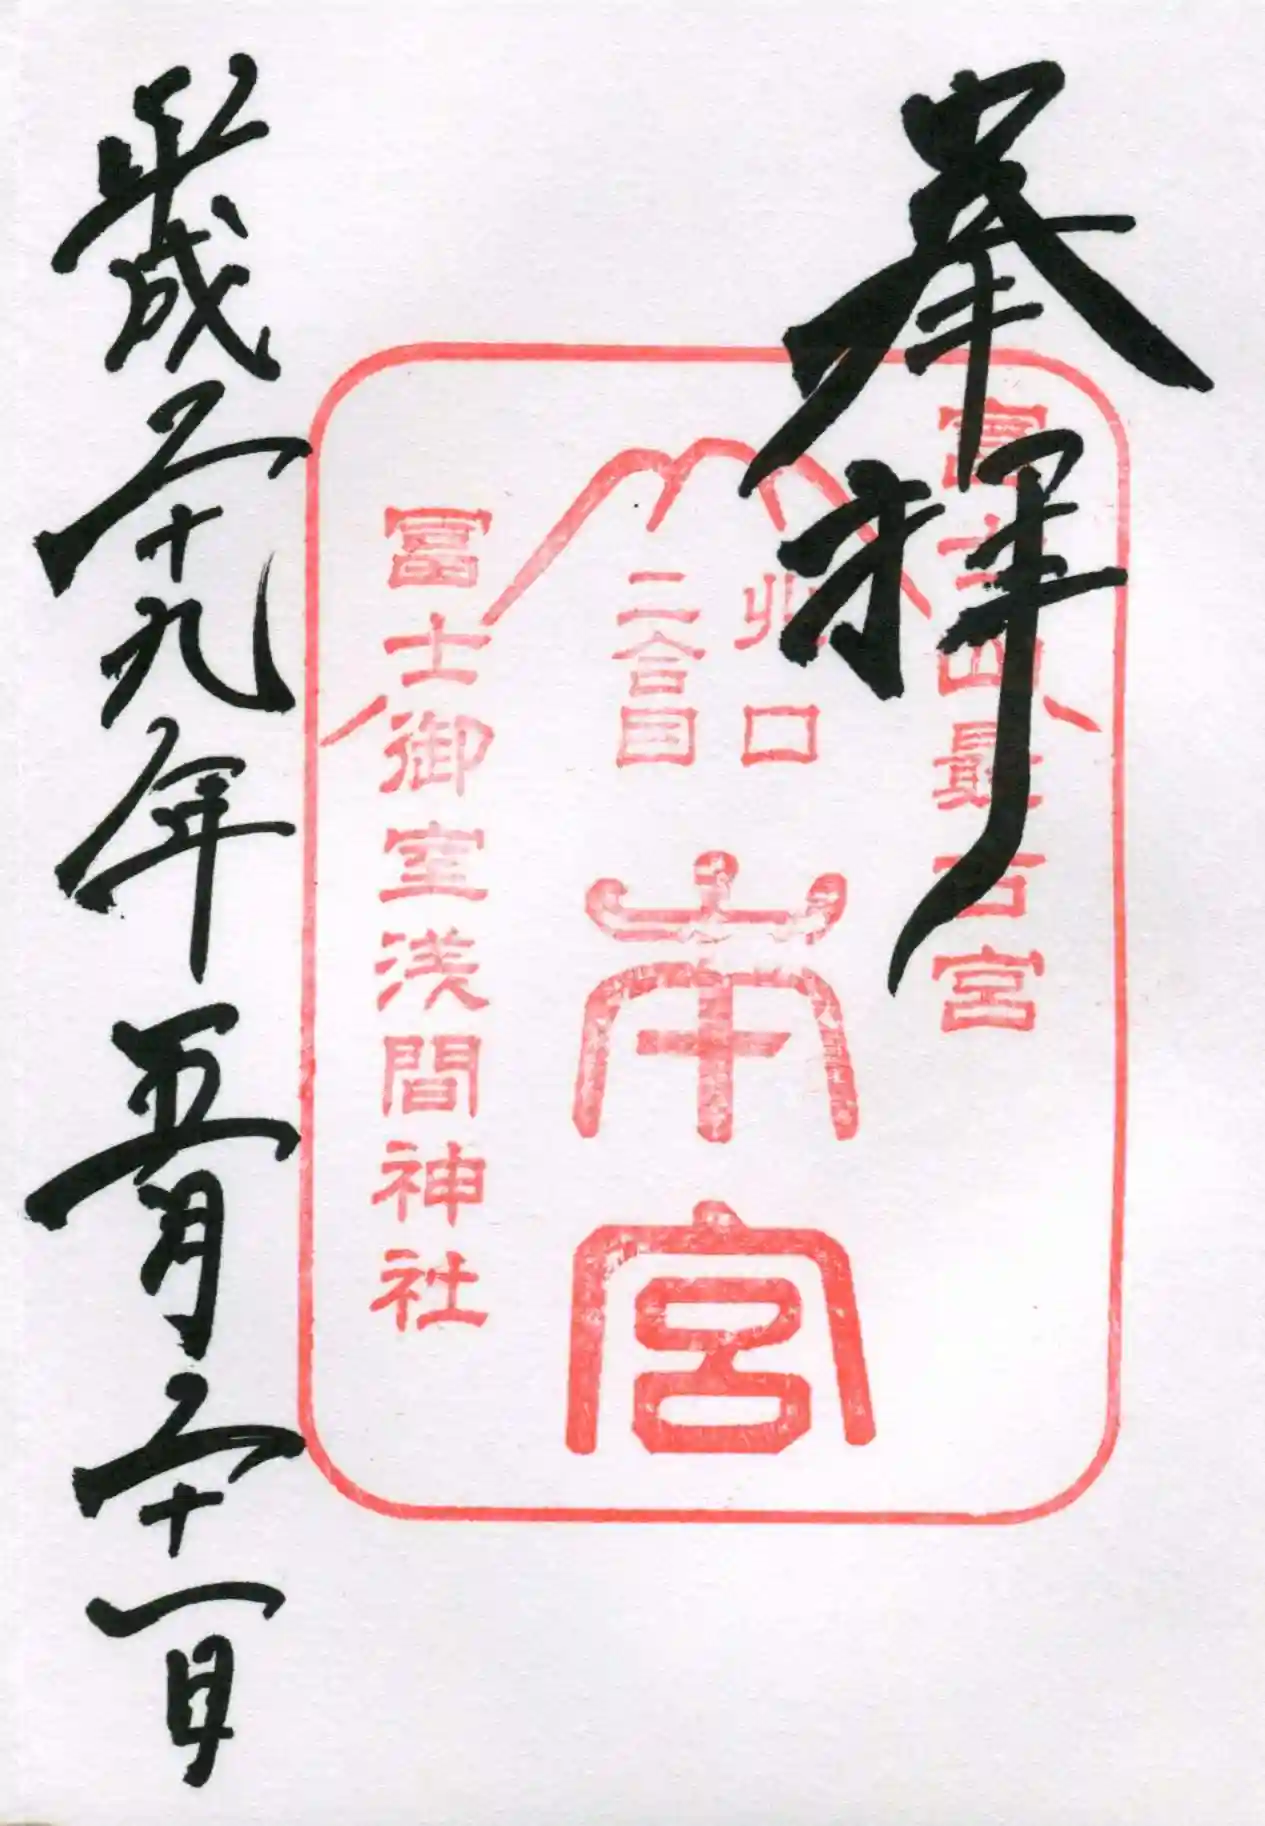 奉拝
富士山最古宮
北口
二合目
本宮
冨士御室浅間神社
平成二十九年五月二十一日